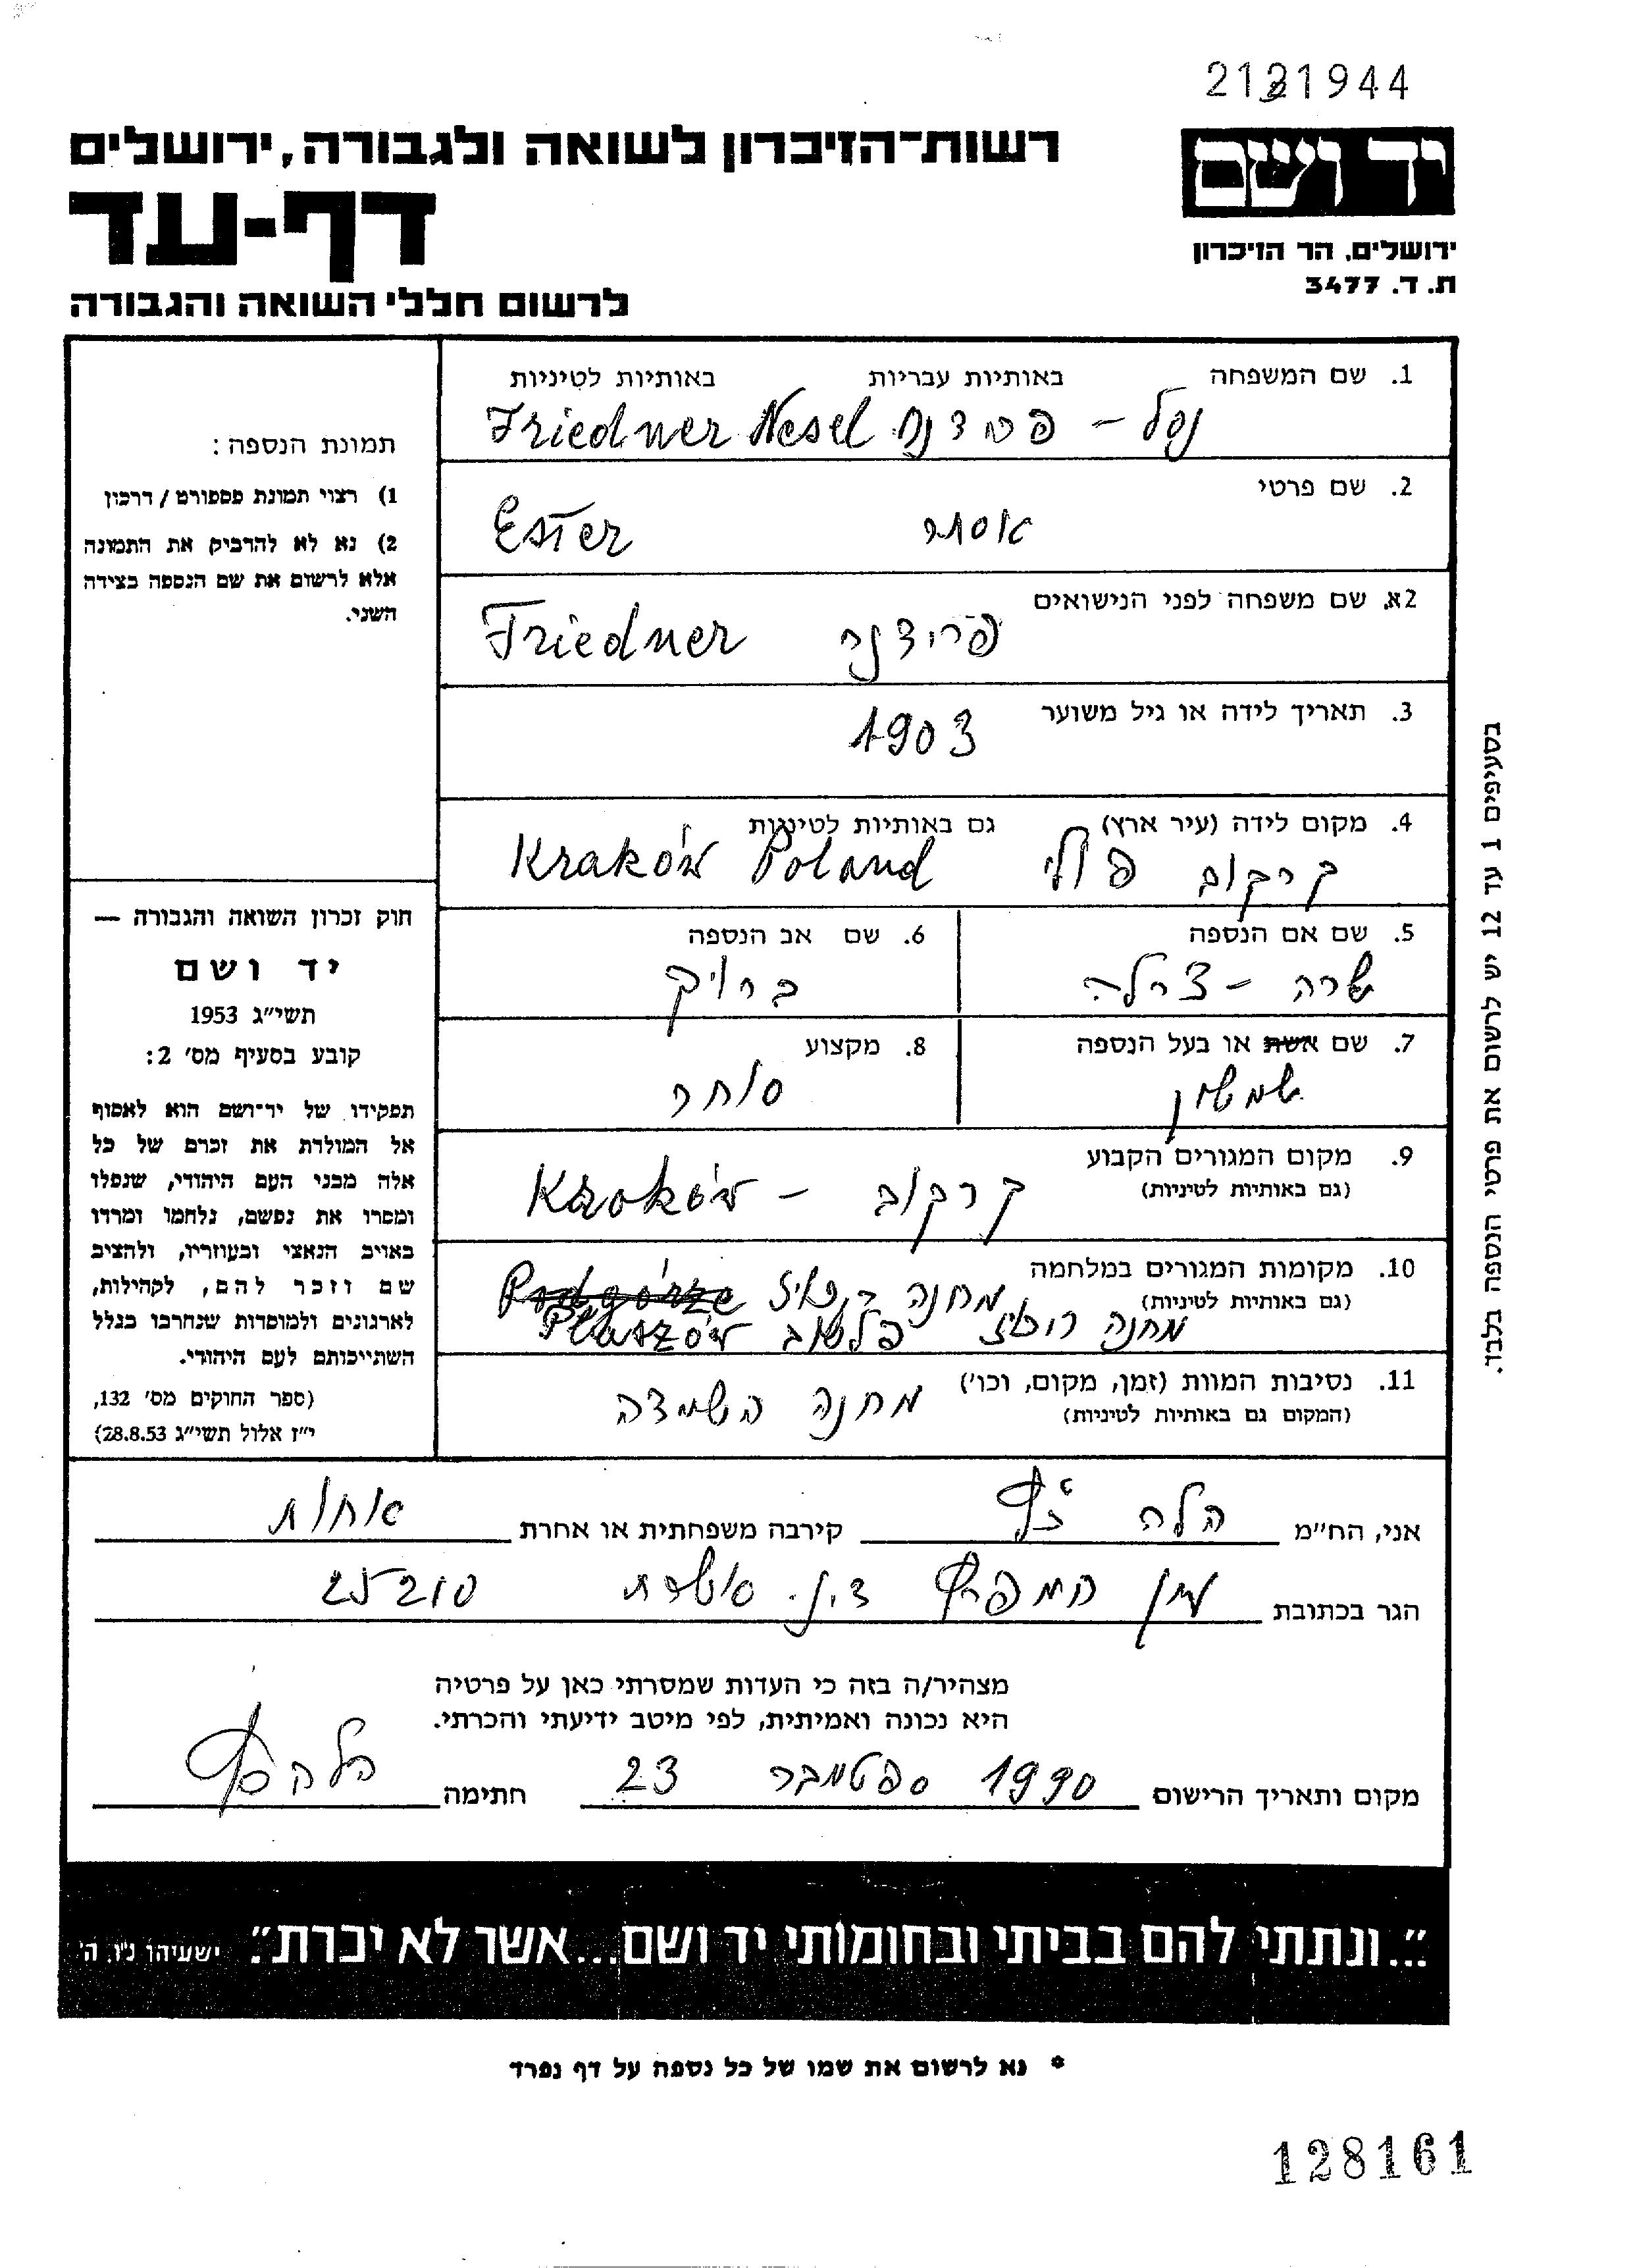 2121944
רשות-הזיכרון לשואה ולגבורה, ירושלים
דף-עד
לרשום חללי השואה והגבורה
יד ושם
ירושלים, הר הזיכרון
ת. ד. 3477
1. שם המשפחה באותיות עבריות באותיות לטיניות
נסל - פרידנר Friedner Nesel
2. שם פרטי
אסתר Ester
2א. שם משפחה לפני הנישואים
פרידנר Friedner
3. תאריך לידה או גיל משוער
1903
4. מקום לידה (עיר ארץ) גם באותיות לטיניות
קרקוב פולין Kraków Poland
5. שם אם הנספה
שרה - צרלה
6. שם אב הנספה
7. שם אשת או בעל הנספה
שמשון
8. מקצוע
סוחר
9. מקום המגורים הקבוע
(גם באותיות לטיניות)
קרקוב - Kraków
10. מקומות המגורים במלחמה
(גם באותיות לטיניות)
מחנה ריכוז Podgórze
מחנה ריכוז פלשוב Płaszów
11. נסיבות המוות (זמן, מקום, וכו')
(המקום גם באותיות לטיניות)
מחנה השמדה
תמונת הנספה:
1) רצוי תמונת פספורט/דרכון
2) נא לא להדביק את התמונה
אלא לרשום את שם הנספה בצידה
השני.
חוק זכרון השואה והגבורה —
יד ושם
תשי"ג 1953
קובע בסעיף מס' 2:
תפקידו של יד-ושם הוא לאסוף
אל המולדת את זכרם של כל
אלה מבני העם היהודי, שנפלו
ומסרו את נפשם, נלחמו ומרדו
באויב הנאצי ובעוזריו, ולהציב
שם וזכר להם, לקהילות,
לארגונים ולמוסדות שנחרבו בגלל
השתייכותם לעם היהודי.
(ספר החוקים מס' 132,
י"ז אלול תשי"ג 28.8.53)
בסעיפים 1 עד 12 יש לרשום את פרטי הנספה בלבד.
אני, הח"מ הלה קירבה משפחתית או אחרת אחות
הגר בכתובת עין המפרץ ד.נ. אשרת 25210
מצהיר/ה בזה כי העדות שמסרתי כאן על פרטיה
היא נכונה ואמיתית, לפי מיטב ידיעתי והכרתי.
מקום ותאריך הרישום 1990 ספטמבר 23 חתימה הלה
"...ונתתי להם בביתי ובחומותי יד ושם...אשר לא יכרת". ישעיהו נ"ו, ה'
* נא לרשום את שמו של כל נספה על דף נפרד
128161